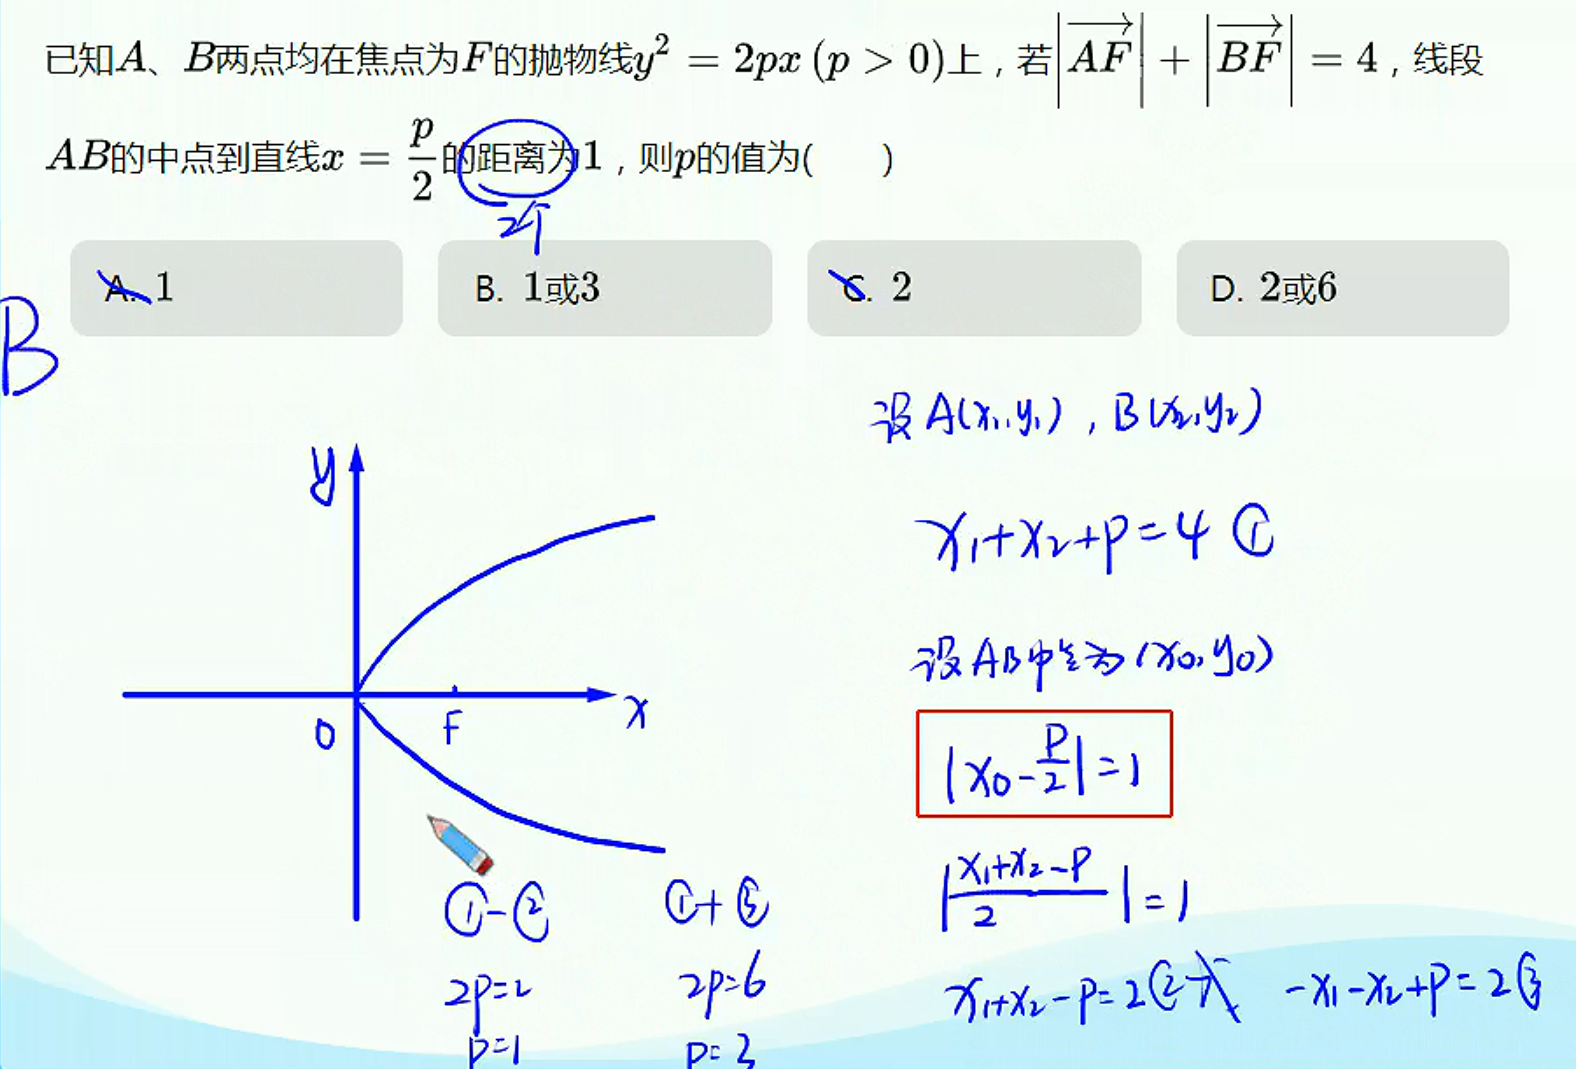 已知A、B两点均在焦点为F的抛物线y² = 2px (p > 0)上，若|AF→| + |BF→| = 4，线段
AB的中点到直线x = p/2的距离为1，则p的值为(　　)
2个
A. 1
B. 1或3
C. 2
D. 2或6
B
设A(x₁,y₁)，B(x₂,y₂)
y
x₁+x₂+p=4 ①
设AB中点为(x₀,y₀)
O
F
x
|x₀-p/2|=1
|(x₁+x₂-p)/2|=1
①-②
①+③
2p=2
2p=6
x₁+x₂-p=2② -x₁-x₂+p=2③
p=1
p=3